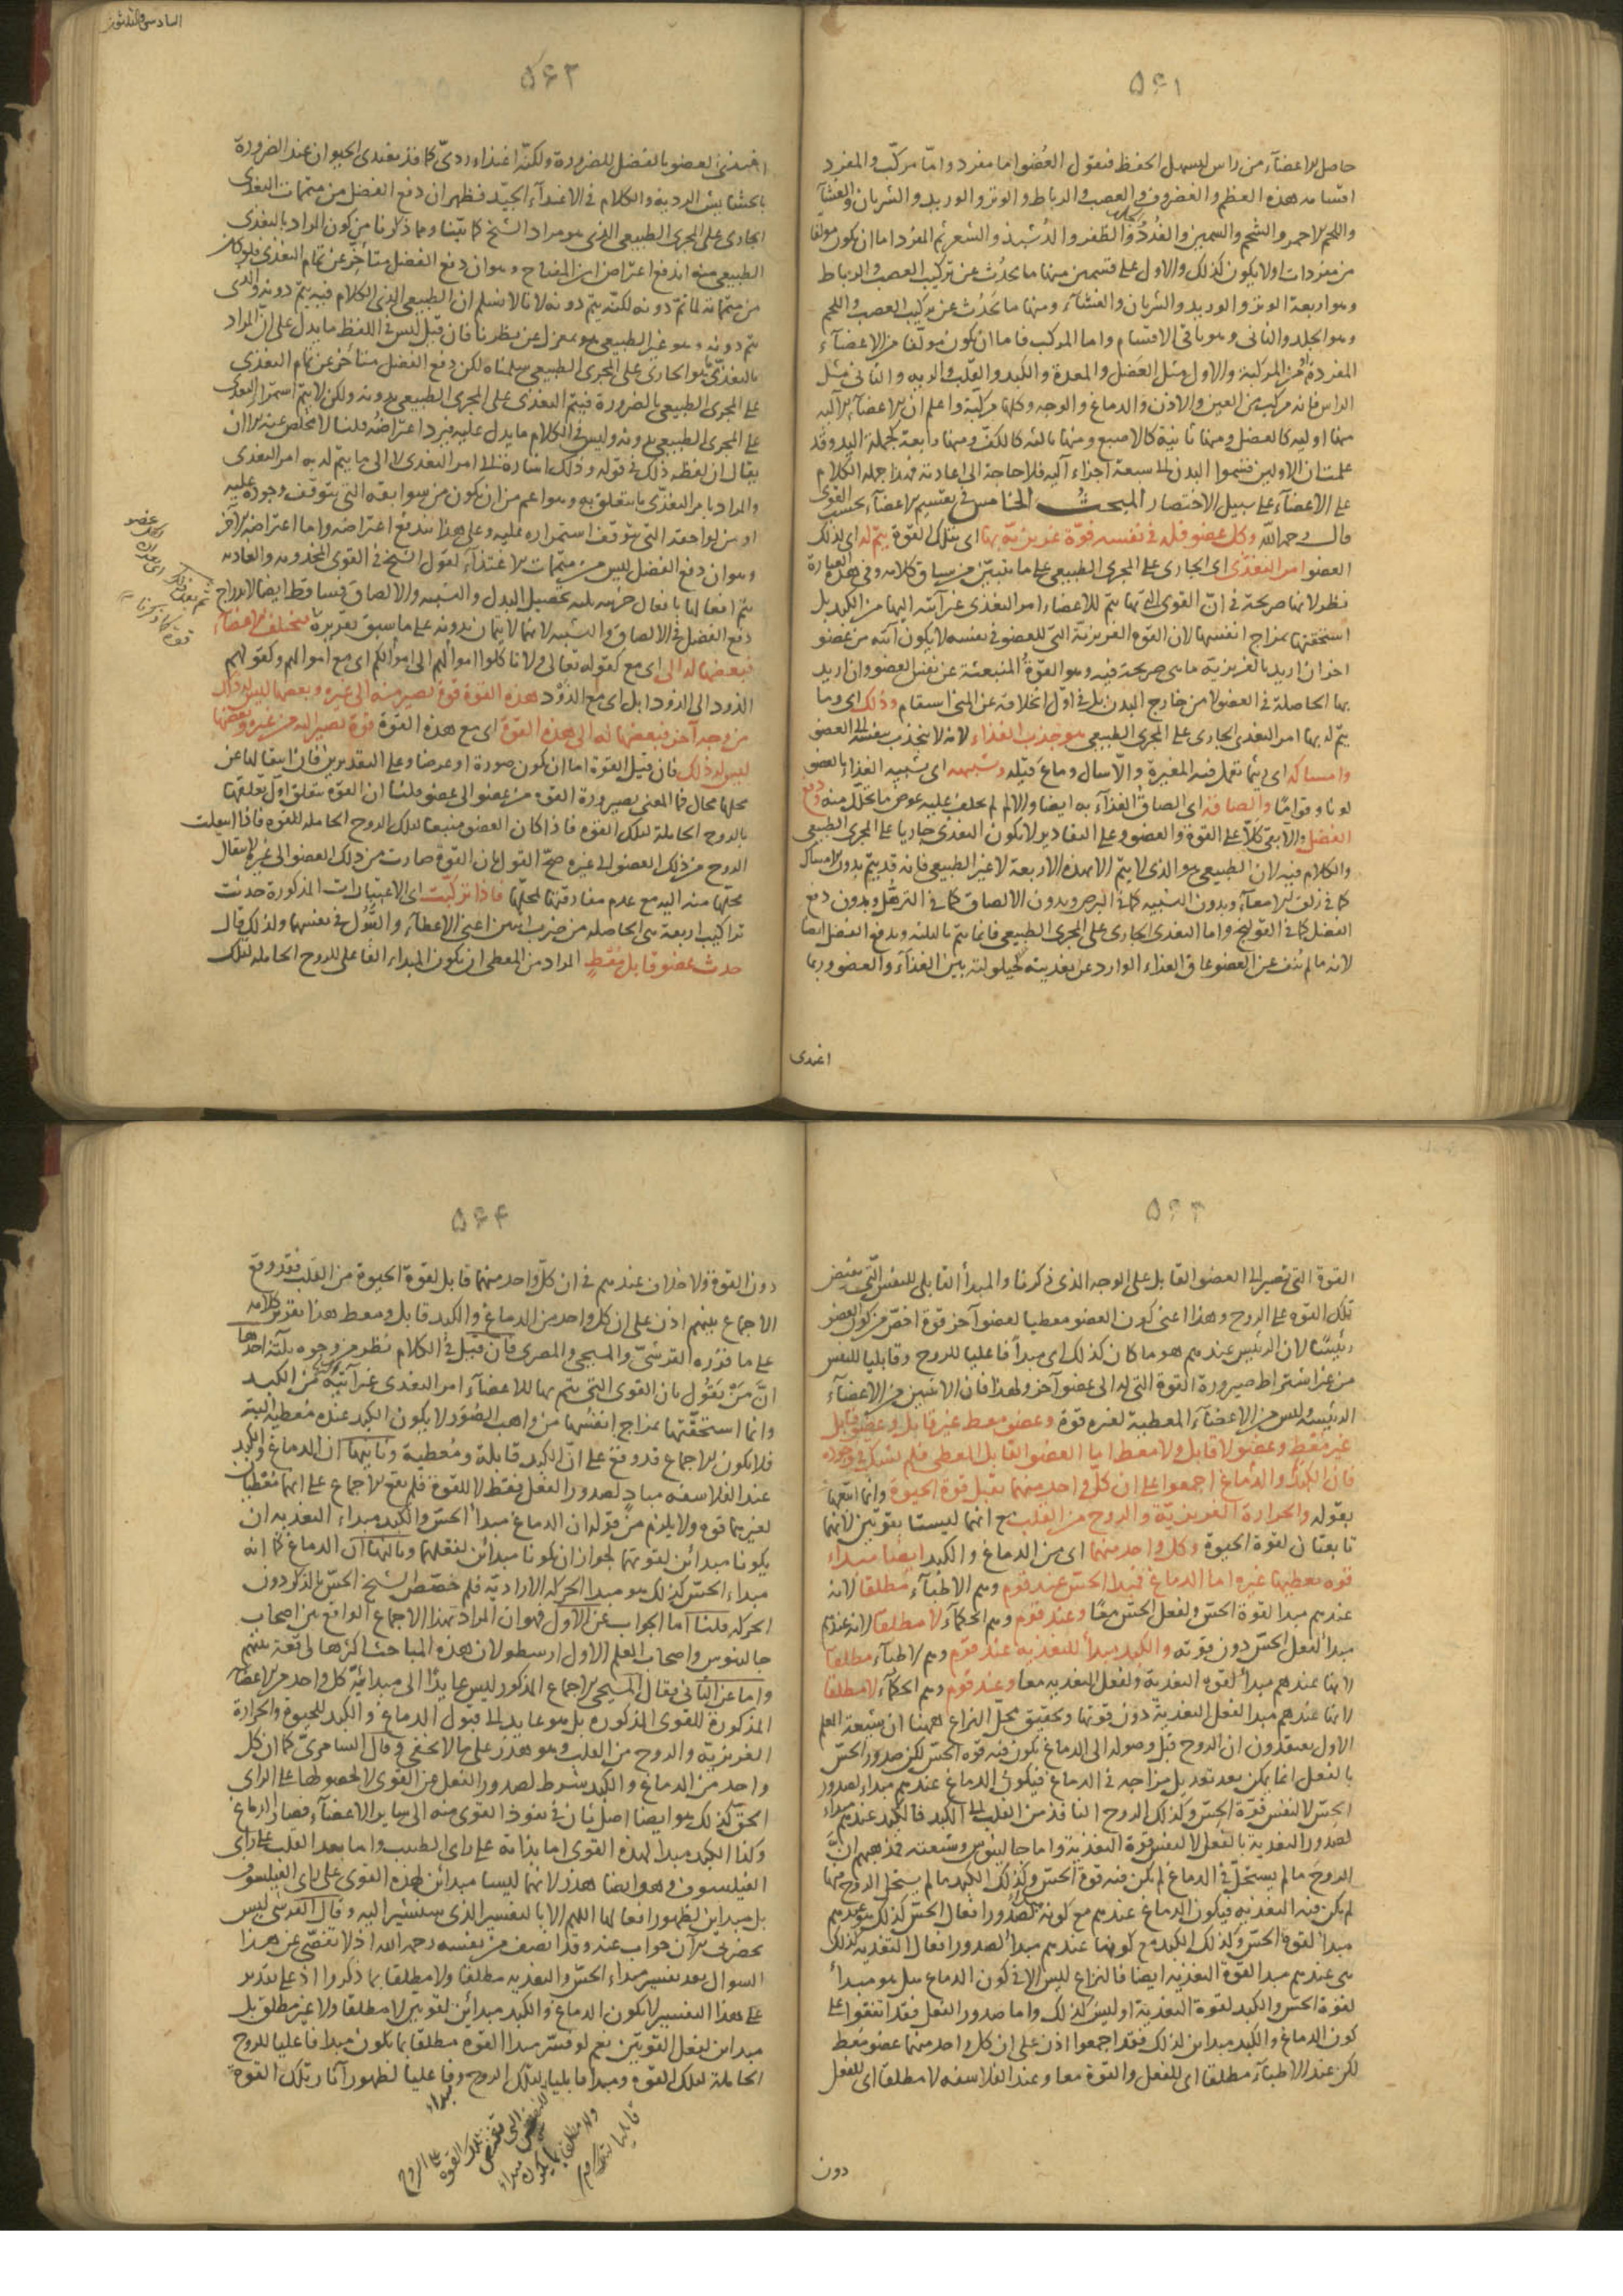 ۵۶۱
حاصل الاعضآء من راس ليسهل الحفظ فنقول العُضو اما مفرد واما مركّب والمفرد
اقسامه هذه العظم والغضروف والعصب والرباط والوتر والوريد والشريان والغشآء
واللحم الاحمر والشحم والسمين والغُدَد والظفر والشعر ثم المفرد اما ان يكون مولفا
من مفردات اولا يكون كذلك والاول على قسمين منها ما يحدُث عن تركيب العصب والرباط
وهو اربعة الوتر والوريد والشريان والغشآء ومنها ما يَحدُث عن تركيب العصب واللحم
وهو الجلد والثانى وهو باقى الاقسام واما المركب فاما ان يكون مولّفا من الاعضآء
المفردة او من المركبة والاول مثل العَضَل والمعدة والكبد والقلب والريه والثانى مثل
الراس فانه مركب من العين والاذن والدماغ والوجه وكلها مركبة واعلم ان الاعضآء الآلية
منها اوليه كالعضل ومنها ثانية كالاصبع ومنها ثالثه كالكفّ ومنها رابعة كجملة اليد وقد
علمت ان الاولين قسّموا البدن الى سبعة اجزاء آليه فلا حاجة الى اعادته فهذا جمله الكلام
على الاعضآء على سبيل الاختصار المبحثُ الخامس فى تقسيم الاعضآء بحسب القوى
قال رحمه الله وكل عضو فله فى نفسه قوّة غريزيّة بها اى بتلك القوة يتمّ له اى لذلك
العضو امر التغذّى اى الجارى على المجرى الطبيعى على ما يتبيّن من سياق كلامه وفى هذه العبارة
نظر لانها صريحة فى انّ القوى التى بها يتمّ للاعضاء امر التغذى غير آتية اليها من الكبد بل
استحقتها بمزاج انفسها لان القوة الغريزيّة التى للعضو فى نفسه لا يكون آتيه من عضو
اخر ان اريد بالغريزية ما هى صريحة فيه وهو القوّةُ المنبعثة عن نفس العضو وان اريد
بها الحاصلة فى العضو لا من خارج البدن بل فى اوّل انخلاقه عن المنى استقام وذلك اى وما
يتم له بها امر التغذى الجارى على المجرى الطبيعى هو جذب الغذاء لانه لا ينجذب بنفسه الى العضو
وامساكه اى ريثما تعمل فيه المغيرة والّا سال وما عَ قبله وتشبيهه اى تشبيه الغذاء بالعضو
لونا وقواما والصاقه اى الصاق الغذآء به ايضا والا لم يخلف عليه عوض ما تحلّل منه ودفع
الفضل
والكلام فيه لان الطبيعى هو الذى لا يتمّ الا بهذه الاربعة لا غير الطبيعى فانه قد يتمّ بدون الامساك
كما فى زلق الامعآء وبدون التشبيه كما فى البرص وبدون الالصاق كما فى الترهّل وبدون دفع
الفضل كما فى القولنج واما التغذى الجارى على المجرى الطبيعى فانما يتم بالثلثه وبدفع الفضل ايضا
لانه ما لم يندفع عن العضو عاق الغذاء الوارد عن تغذيته لحيلولته بين الغذآء والعضو وربما
اغتدى
السادس والثلثون
۵۶۲
اغتدى العضو بالفضل للضرورة ولكنّه اغتذاء ردىّ كما قد يغتدى الحيوان عند الضرورة
بالحشايش الرديه والكلام فى الاغتذآء الجيّد فظهر ان دفع الفضل من متمّمات التغذى
الجارى على المجرى الطبيعى الذى هو مراد الشيخ كما بيّنا وبما ذكرنا من كون المراد بالتغذى
الطبيعى منه اندفع اعتراض ابن المفتاح وهو ان دفع الفضل متأخّر عن تمام التغذى فلو كان
من متمّماته لما تمّ دونه لكنّه يتم دونه لانا لا نسلم ان الطبيعى الذى الكلام فيه يتمّ دونه والذى
يتم دونه وهو غير الطبيعى هو بمعزل عن نظرنا فان قيل ليس فى اللفظ ما يدل على انّ المراد
بالتغذّى هو الجارى على المجرى الطبيعى سلمناه لكن دفع الفضل متأخر عن تمام التغذى
على المجرى الطبيعى بالضرورة فيتم التغذى على المجرى الطبيعى بدونه ولكن لا يتم استمرار التغذى
على المجرى الطبيعى بدونه وليس فى الكلام ما يدل عليه فيرد اعتراضُه قلنا لا مخلص عنه الا ان
يقال ان لفظه ذلك فى قوله وذلك اشارة الى امر التغذى لا الى ما يتم له به امر التغذى
والمراد بامر التغذّى ما يتعلق به وهو اعم من ان يكون من سوابقه التى يتوقف وجوده عليه
او من لواحقه التى يتوقف استمراره عليه وعلى هذا يندفع اعتراضه واما اعتراضه الآخر
وهو ان دفع الفضل ليس من متمّمات الاغتذآء لقول الشيخ فى القوى المخدومه والغاذيه
يتم افعالها بافعال جزئيه ثلثه تحصيل البدل والتشبيه والالصاق فساقط ايضا لاندراج
دفع الفضل فى الالصاق والتشبيه لانهما لا يتمان بدونه على ما سبق تقريرهُ ثم يختلف الاعضاء
فبعضها له الى اى مع كقوله تعالى ولا تاكلوا اموالهم الى اموالكم اى مع اموالهم وكقولهم
الذود الى الذود ابل اى مع الذَوْد هذه القوة قوة تصير منه الى غيره وبعضها ليس له ذلك
من وجه آخر فبعضها له الى هذه القوة اى مع هذه القوّة قوة تصير اليه من غيره وبعضها
ليس له ذلك فان قيل القوة اما ان يكون صورة او عرضا وعلى التقديرين فان انتقالها عن
محلها محال فما المعنى بصيرورة القوه من عضو الى عضو قلنا ان القوّه يتعلق اوّل تعلّقها
بالروح الحاملة لتلك القوه فاذا كان العضو منبعا لتلك الروح الحامله للقوه فاذا انتقلت
الروح من ذلك العضو الى غيره صحّ القول بان القوة صارت من ذلك العضو الى غيره لانتقال
محلها منه اليه مع عدم مفارقتها لمحلّها فاذا تركّبت اى الاعتبارات المذكورة حدثت
تراكيب اربعة هى الحاصله من ضرب اثنين اعنى الاعطآء والقَبُول فى نفسهما ولذلك قال
حدث عضو قابل مُعْطٍ المراد من المعطى ان يكون المبداء الفاعلى للروح الحامله لتلك
۵۶۳
القوة التى تصير الى العضو القابل على الوجه الذى ذكرنا والمبدأ القابلى للنفس التى يفيض
تلك القوه على الروح وهذا اعنى كون العضو معطيا لعضو آخر قوة اخصّ من كون العضو
رئيسًا لان الرئيس عندهم هو ما كان كذلك اى مبدأً فاعليا للروح وقابليا للنفس
من غير اشتراط صيرورة القوة التى له الى عضو آخر ولهذا فان الانثيين من الاعضآء
الرئيسه وليس من الاعضآء المعطية لغيره قوة وعضو معط غير قابل وعضو قابل
غير مُعْطٍ وعضو لا قابل ولا معط اما العضو القابل المعطى فلم يشك فى وجوده
فان الكبدَ والدماغ اجمعوا على ان كلّ واحد منهما يقبل قوة الحيوة وانما اتبعها
بقوله والحرارة الغريزيّة والروح من القلب مع انهما ليستا بقوّتين لانهما
تابعتان لقوة الحيوة وكل واحد منهما اى من الدماغ والكبد ايضا مبداء
قوه يعطيها غيره اما الدماغ فمبدا الحسّ عند قوم وهم الاطبّآء مُطلقا لانه
عندهم مبدا القوة الحسّ ولفعل الحسّ معًا وعند قوم وهم الحكمآء لا مطلقا لانه عندهم
مبدأ لفعل الحسّ دون قوته والكبد مبدأ للتغذيه عند قوم وهم الاطبآء مطلقا
لانها عندهم مبدأ لقوه التغذية ولفعل التغذيه معا وعند قوم وهم الحكمآء لا مطلقا
لانها عندهم مبدا لفعل التغذية دون قوتها وتحقيق محل النزاع ههنا ان شيعة المعلم
الاول يعتقدون ان الروح قبل وصوله الى الدماغ يكون فيه قوه الحسّ لكن صدور الحسّ
بالفعل انما يمكن بعد تعديل مزاجه فى الدماغ فيكون الدماغ عندهم مبداء لصدور
الحسّ لا لنفس قوّة الحِسّ وكذلك الروح النافذ من القلب الى الكبد فالكبد عندهم مبداء
لصدور التغذية بالفعل لا لنفس قوة التغذية واما جالينوس وشيعته فمذهبهم انّ
الروحَ ما لم يستحل فى الدماغ لم يكن فيه قوة الحسّ وكذلك الكبد ما لم يستحل الروح فيها
لم يكن فيه التغذيه فيكون الدماغ عندهم مع كونه مبدأ لصدور افعال الحسّ كذلك هو عندهم
مبدأ لقوة الحسّ وكذلك الكبد مع كونها عندهم مبدأ لصدور افعال التغذيه كذلك
هى عندهم مبدا القوة التغذيه ايضا فالنزاع ليس الا فى كون الدماغ هل هو مبدأ
لقوة الحسّ والكبد لقوة التغذية او ليس كذلك واما صدور الفعل فقد اتفقوا على
كون الدماغ والكبد مبداين لذلك فقد اجمعوا اذن على ان كل واحد منهما عضو مُعط
لكن عند الاطبآء مطلقا اى للفعل والقوة معا وعند الفلاسفه لا مطلقا اى للفعل
دون
۵۶۴
دون القوة ولا خلاف عندهم فى ان كلّ واحد منهما قابل لقوة الحيوة من القلب فقد وقع
الاجماع بينهم اذن على ان كل واحد من الدماغ والكبد قابل ومعط هذا تقرير كلامه
على ما قرّره القرشىّ والمسيحى والمصرى فان قيل فى الكلام نظر من وجوه ثلثة احدها
انّ مَنْ يَقُول بان القوى التى يتم بها للاعضآء امر التغذى غير آتيةٍ من الكبد
وانما استحقّتها بمزاج انفسُها من واهب الصُوَر لا يكون الكبد عنده مُعطية البتة
فلا يكون الاجماع قد وقع على انّ الكبد قابلة ومُعطية وثانيها ان الدماغ والكبد
عند الفلاسفه مبادٍ لصدور الفعل فقط لا للقوة فلم يقع الاجماع على انها مُعْطيان
لغيرهما قوه ولا يلزم من قوله ان الدماغ مبدأ الحسّ والكبد مبداء التغذيه ان
يكونا مبدائن لقوتهما لجواز ان يكونا مبدائن لفعلهما وثالثها ان الدماغ كما انه
مبداء الحسّ كذلك هو مبدا الحركه الاراديّه فلم خصّص الشيخ الحسّ بالذكر دون
الحركه قلنا اما الجواب عن الاول فهو ان المراد بهذا الاجماع الواقع بين اصحاب
جالينوس واصحاب المعلم الاول ارسطو لان هذه المباحث اكثرها واقعة بينهم
واما عن الثانى فقال المسيحى الاجماع المذكور ليس عايدًا الى مبدائيّة كل واحد من الاعضآء
المذكورة للقوى المذكوره بل هو عايد الى قبول الدماغ والكبد للحيوة والحرارة
الغريزيّه والروح من القلب وهو هَذَر على ما لا يخفى وقال السامرىّ كما ان كل
واحد من الدماغ والكبد شرط لصدور الفعل عن القوى لا لحصولها على الراى
الحقّ كذلك هو ايضا اصل ثان فى نفوذ القوى منه الى ساير الاعضآء فصار الدماغ
وكذا الكبد مبدا لهذه القوى اما بذاته على راى الطبيب واما بعد القلب على راى
الفيلسوف وهو ايضا هذر لانهما ليسا مبدائن لهذه القوى على راى الفيلسوف
بل مبداين لظهور افعالها اللهم الا بالتفسير الذى سنشير اليه وقال القرشى ليس
يحضرنى الآن جواب عنه وقد انصف من نفسه رحمه الله اذ لا تفصّى عن هذا
السوال بعد تفسير مبداء الحسّ والتغذيه مطلقا ولا مطلقا بما ذكروا اذ على تقدير
على هذا التفسير لا يكون الدماغ والكبد مبدائن لقوتين لا مطلقا ولا غير مطلق بل
مبداين لفعل القوتين نعم لو فسّر مبدا القوه مطلقا بما يكون مبدا فاعليا للروح
الحاملة لتلك القوه ومبدا قابليا لتلك الروح وفاعليا لظهور آثار تلك القوة